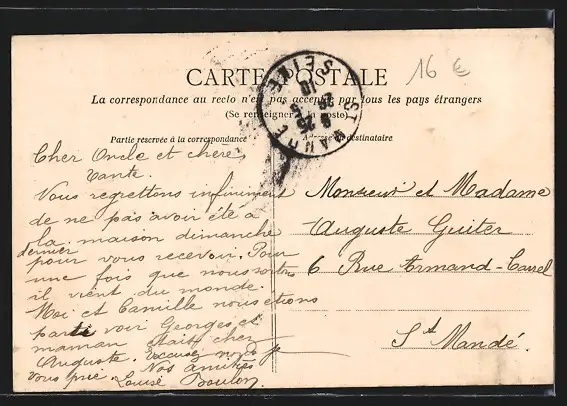 CARTE POSTALE
16 €
La correspondance au recto n'est pas acceptée par tous les pays étrangers
(Se renseigner à la poste)
Partie réservée à la correspondance
Adresse du destinataire
ST MANDÉ
SEINE
Cher Oncle et chère
Tante.
Vous regrettons infiniment
de ne pas avoir été à
la maison dimanche
dernier
pour vous recevoir. Pour
une fois que nous sortons
il vient du monde.
Moi et Camille nous étions
partie voir Georges et
maman était chez
Auguste. Excusez nous je
vous prie. Nos amitiés
Louise Boulon
Monsieur et Madame
Auguste Guiter
6 Rue Armand-Carrel
St Mandé.